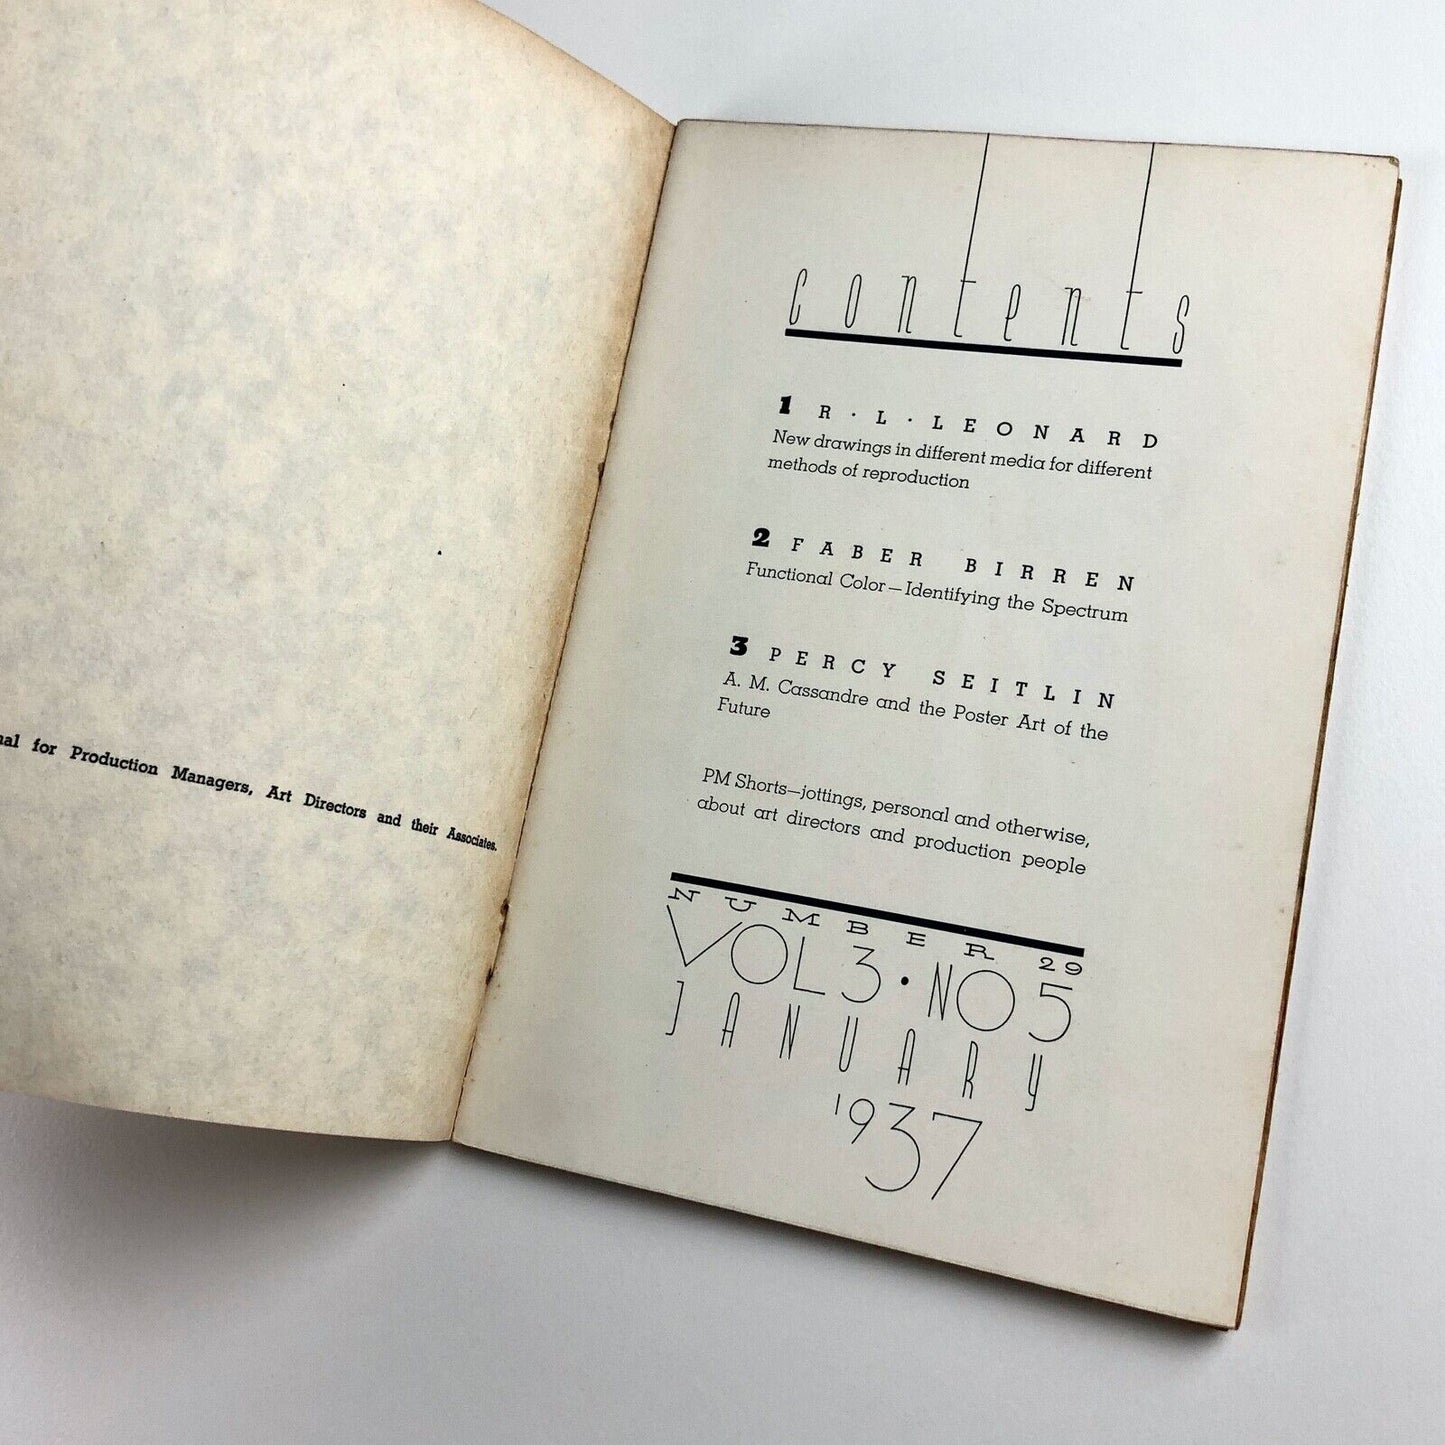 for Production Managers, Art Directors and their Associates.
contents
1 R · L · LEONARD
New drawings in different media for different
methods of reproduction
2 FABER BIRREN
Functional Color—Identifying the Spectrum
3 PERCY SEITLIN
A. M. Cassandre and the Poster Art of the
Future
PM Shorts—jottings, personal and otherwise,
about art directors and production people
NUMBER 29
VOL 3 • NO 5
JANUARY
'937